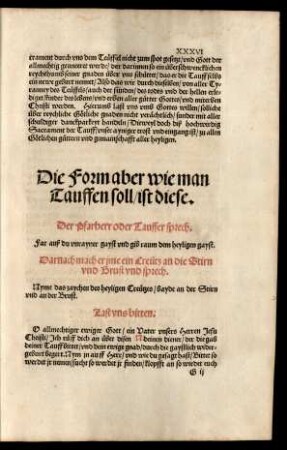 XXXVI
crament durch vns dem Teüffel nicht zum spot gesetzt/vnd Gott der
allmechtig geuneert werde/ der darinnen so ein überschwencklichen
reychthumb seiner gnaden über vns schüttet/ das er die Tauff selbs
ein new geburt nennet/ Als damit wir durch dieselben/ von aller Ty-
ranney des Teüffels/ auch der sünden/ des todes vnd der hellen erle-
diget/ kinder des lebens/ vnd erben aller gütter Gottes/ vnd miterben
Christi werden. Hierumb last vns vmb Gottes willen/ söliche
über reychliche Götliche gnaden nicht verächtlich/ sunder mit aller
schuldiger danckparkeit handeln/ Dieweyl doch diß hochwirdig
Sacrament der Tauff/ vnser aynige trost vnd eingang ist/ zu allen
Götlichen güttern vnd gemainschafft aller heyligen.
Die Form aber wie man
Tauffen soll/ ist diese.
Der Pfarherr oder Tauffer sprech.
Far auß du vnrayner gayst vnd gib raum dem heyligen gayst.
Darnach mach er jme ein Creütz an die Stirn
vnd Brust vnd sprech.
Nyme das zaychen des heyligen Creützes/ bayde an der Stirn
vnd an der Brust.
Last vns bitten.
O allmechtiger ewiger Gott/ ein Vater vnsers Herren Jesu
Christi/ Ich rüff dich an über disen N deinen diener/ der die gab
deiner Tauff bittet/ vnd dein ewige gnad/ durch die gaystlich wider-
geburt begert. Nym jn auff Herr/ vnd wie du gesagt hast/ Bittet so
werdet jr nemen/ sucht so werdet jr finden/ klopfft an so wirdt euch
G ij